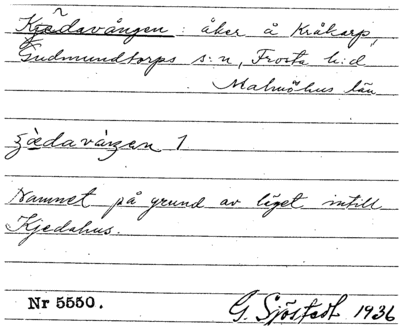 Kjedavången: åker å Kråkarp,
Gudmundtorps s:n, Frosta h:d
Malmöhus län
Namnet på grund av läget intill
Kjedahus.
Nr 5550. G. Sjöstedt 1936